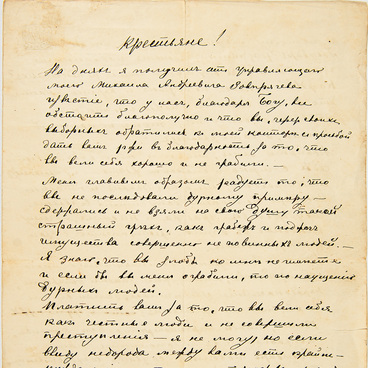 Крестьяне!
На дняхъ я получилъ отъ Управляющаго
моего Михаила Андреевича
извѣстіе, что у насъ, благодаря Богу, все
обстоитъ благополучно и что вы, через своихъ
выборныхъ обратились къ моей конторѣ съ просьбой
дать вамъ ржи въ благодарность за то, что
вы вели себя хорошо и не грабили. —
Меня главнымъ образомъ радуетъ то, что
вы не послѣдовали дурному примѣру —
сдержались и не взяли на свою душу такой
страшный грѣхъ, какъ грабежъ и поджогъ
имущества совершенно не повинныхъ людей. —
Я знаю, что вы злобы ко мнѣ не питаете
и если бы вы меня ограбили, то по наущенію
дурныхъ людей.
Платить вамъ за то, что вы вели себя
какъ честные люди и не совершили
преступленія — я не могу, но если
ввиду недорода между вами есть крайне-